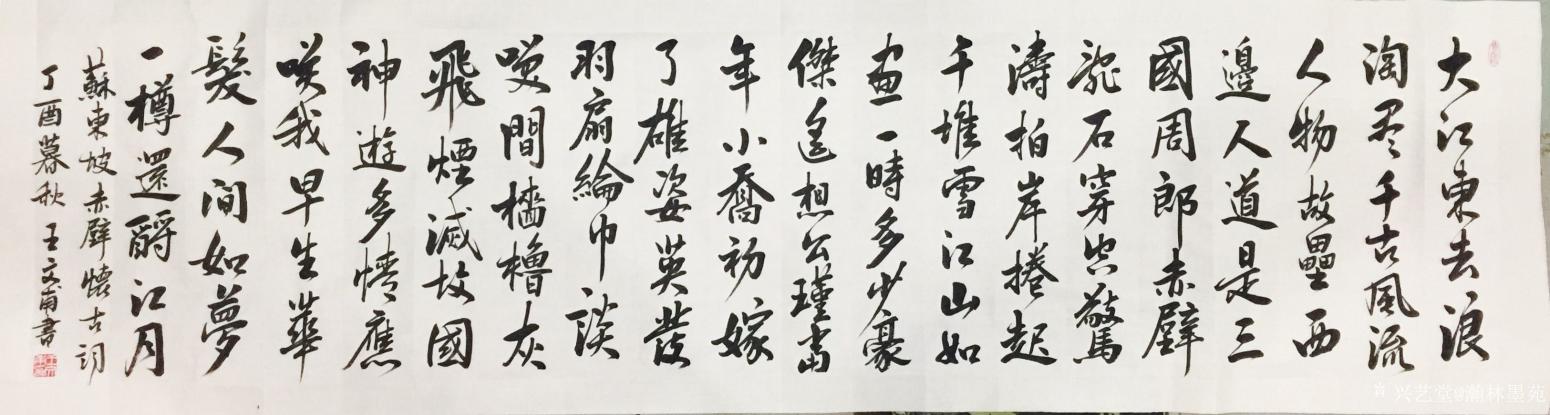 大江東去浪
淘盡千古風流
人物故壘西
邊人道是三
國周郎赤壁
亂石穿空驚
濤拍岸捲起
千堆雪江山如
畫一時多少豪
傑遙想公瑾當
年小喬初嫁
了雄姿英發
羽扇綸巾談
笑間檣櫓灰
飛煙滅故國
神遊多情應
笑我早生華
髮人間如夢
一樽還酹江月
蘇東坡赤壁懷古詞
丁酉暮秋王文甫書
兴艺堂@瀚林墨苑